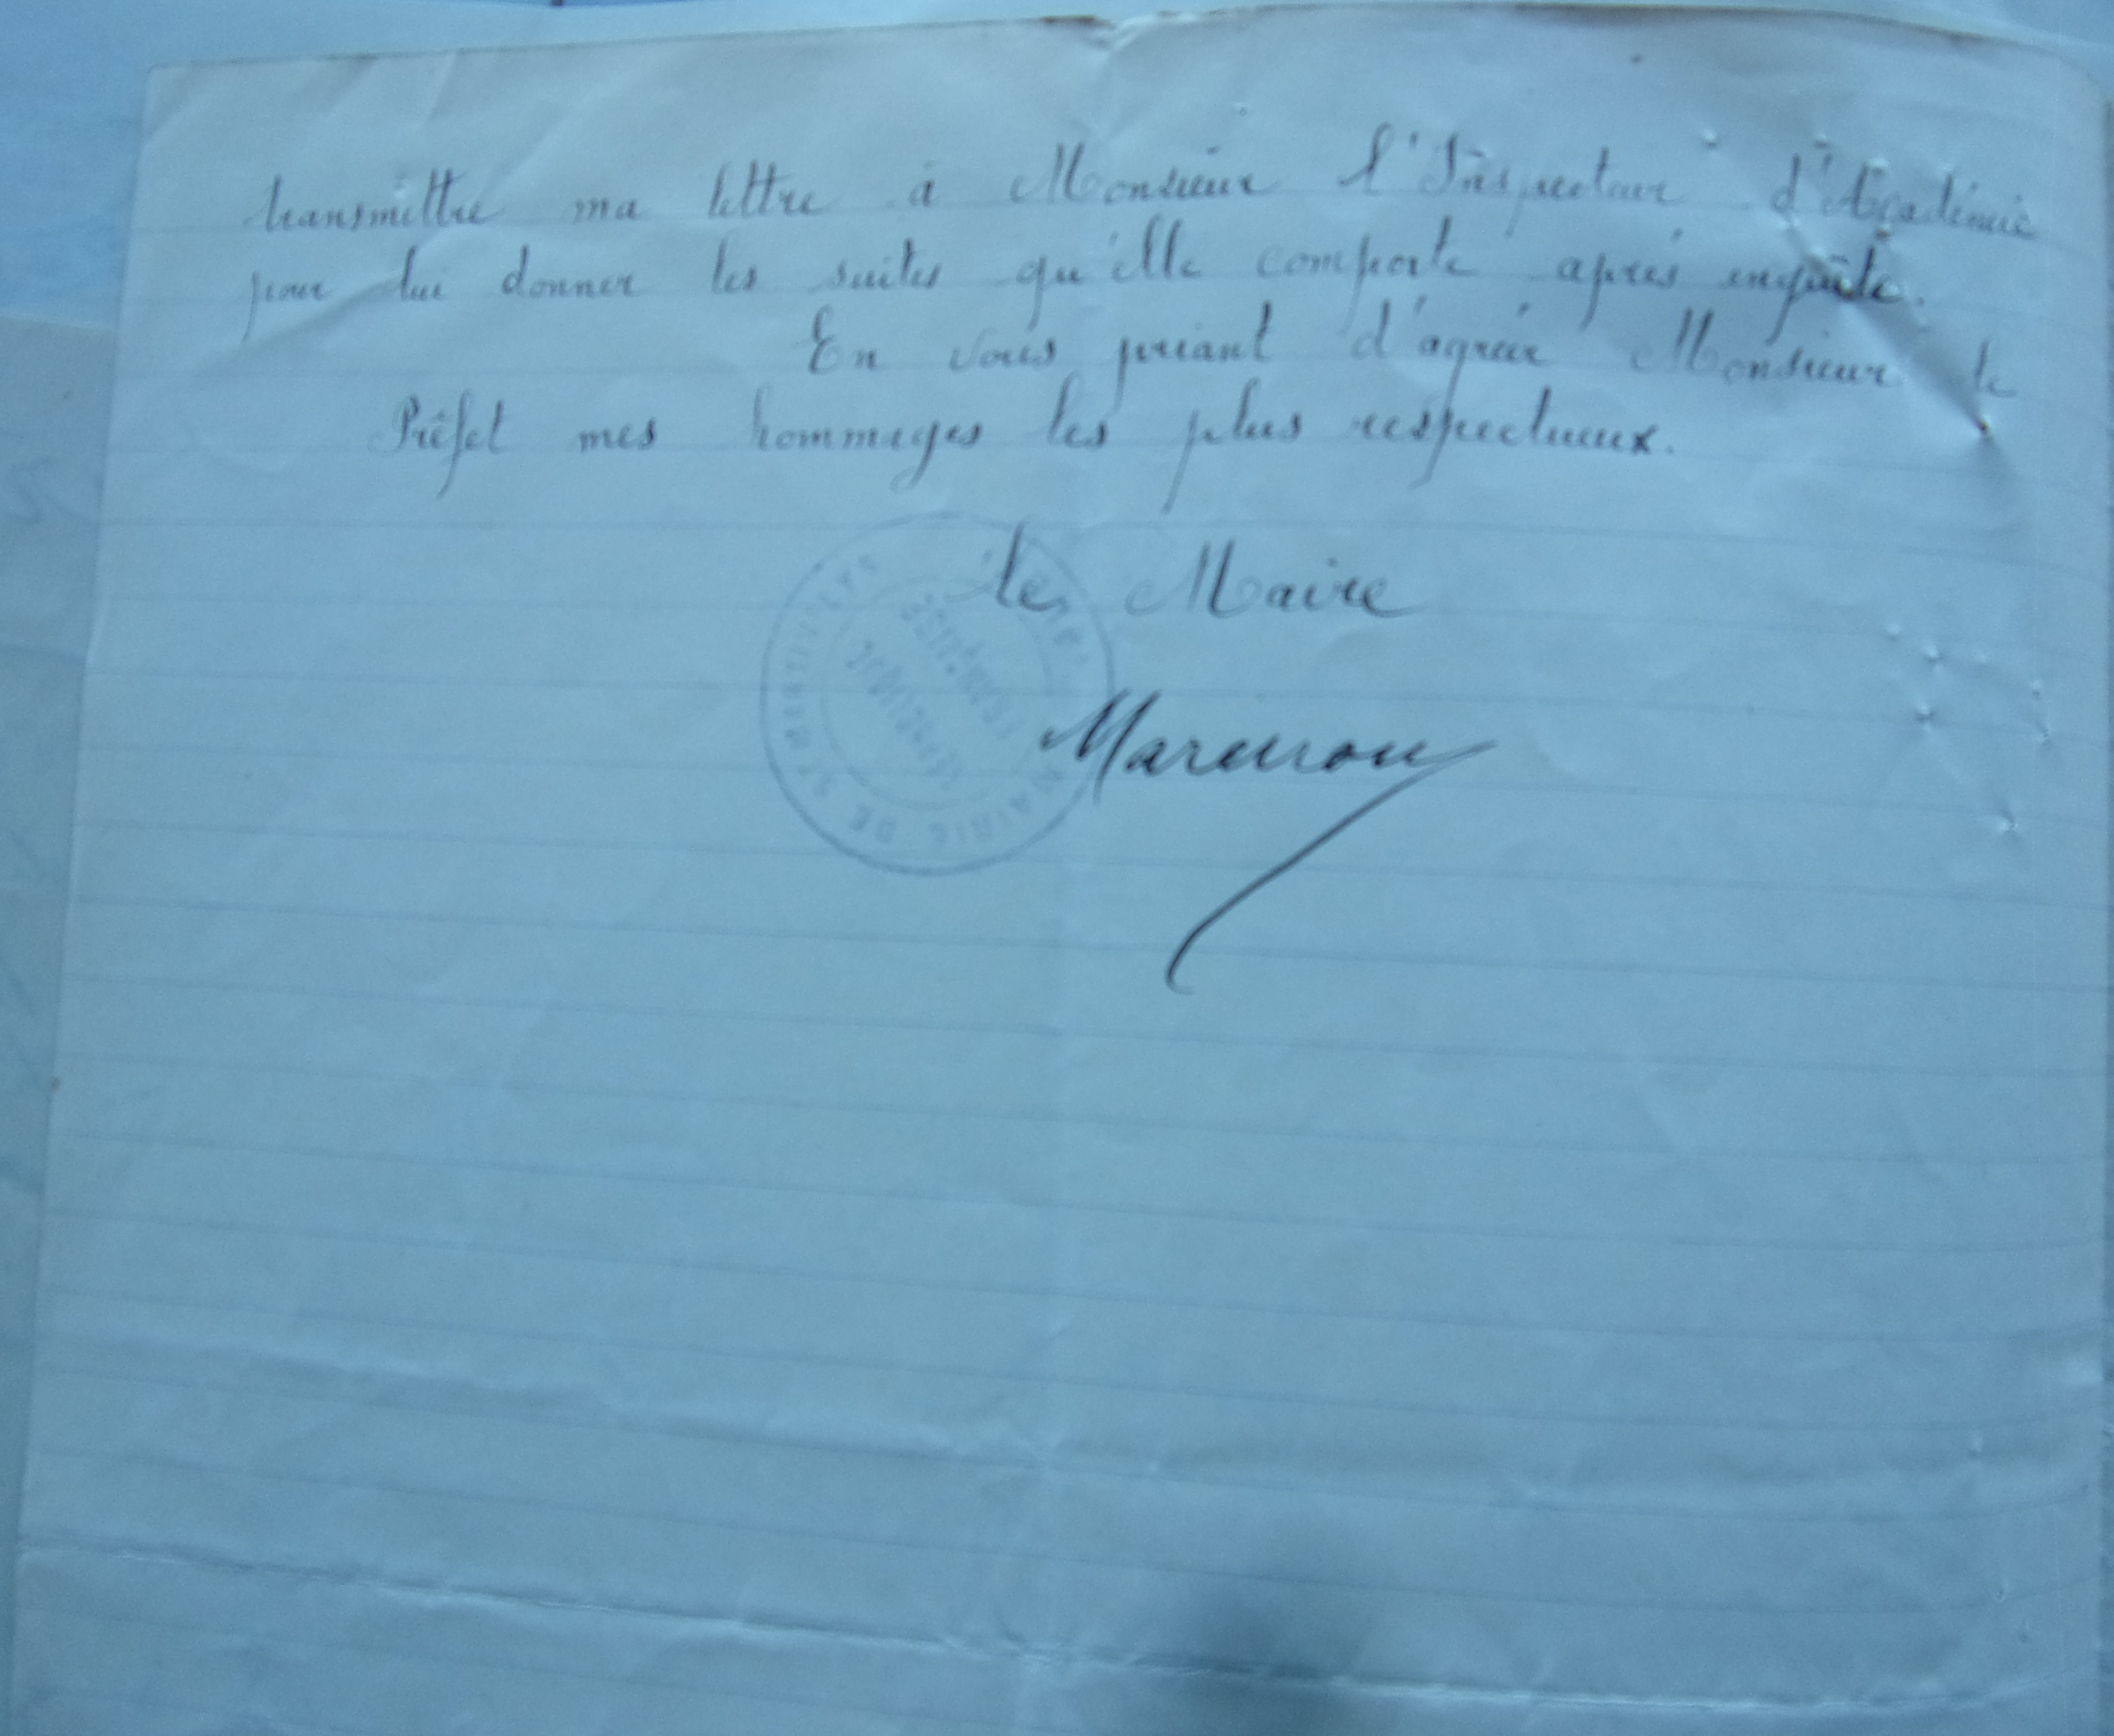 transmettre ma lettre à Monsieur l'Inspecteur d'Académie
pour lui donner les suites qu'elle comporte après enquête.
En vous priant d'agréer Monsieur le
Préfet mes hommages les plus respectueux.
Le Maire
MAIRIE DE ST
RÉPUBLIQUE
FRANÇAISE